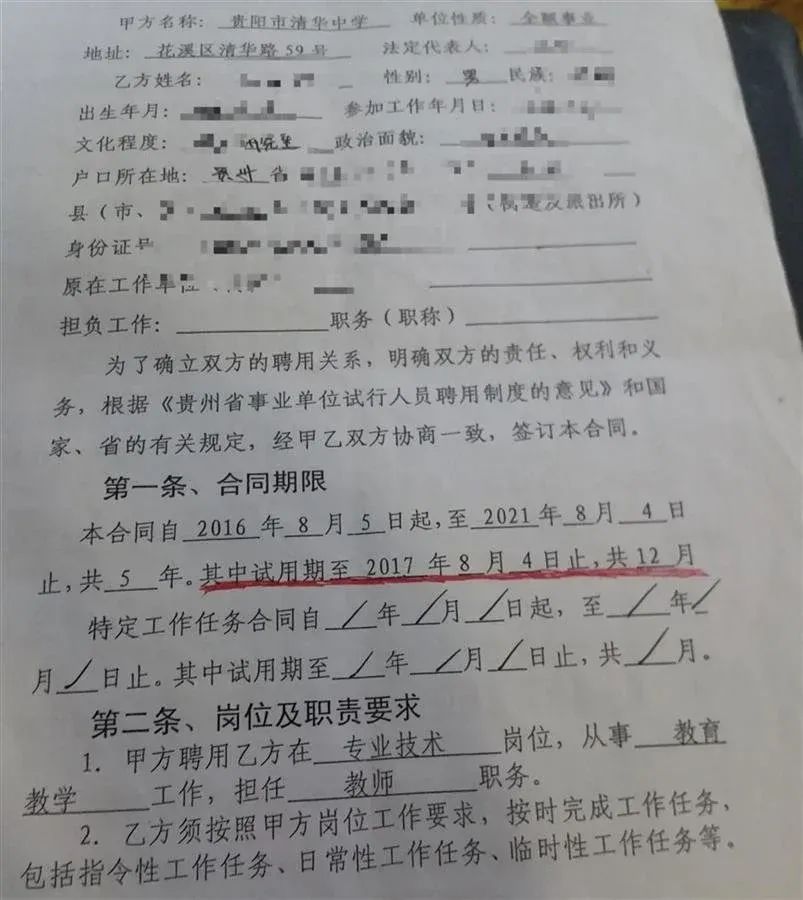 甲方名称： 贵阳市清华中学 单位性质： 全额事业
地址： 花溪区清华路59号 法定代表人：
乙方姓名： 性别： 男 民族：
出生年月： 参加工作年月日：
文化程度： 研究生 政治面貌：
户口所在地： 贵州省
县（市、 派出所）
身份证号
原在工作单位
担负工作： 职务（职称）
为了确立双方的聘用关系，明确双方的责任、权利和义
务，根据《贵州省事业单位试行人员聘用制度的意见》和国
家、省的有关规定，经甲乙双方协商一致，签订本合同。
第一条、合同期限
本合同自 2016 年 8 月 5 日起，至 2021 年 8 月 4 日
止，共 5 年。其中试用期至 2017 年 8 月 4 日止，共 12 月
特定工作任务合同自 / 年 / 月 / 日起，至 / 年 /
月 / 日止。其中试用期至 / 年 / 月 / 日止，共 / 月。
第二条、岗位及职责要求
1. 甲方聘用乙方在 专业技术 岗位，从事 教育
教学 工作，担任 教师 职务。
2. 乙方须按照甲方岗位工作要求，按时完成工作任务，
包括指令性工作任务、日常性工作任务、临时性工作任务等。